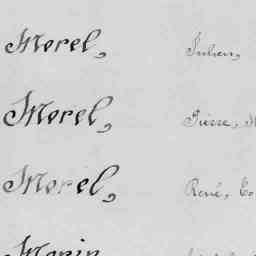 Morel, Julien,
Morel, Pierre,
Morel, René,
Morin